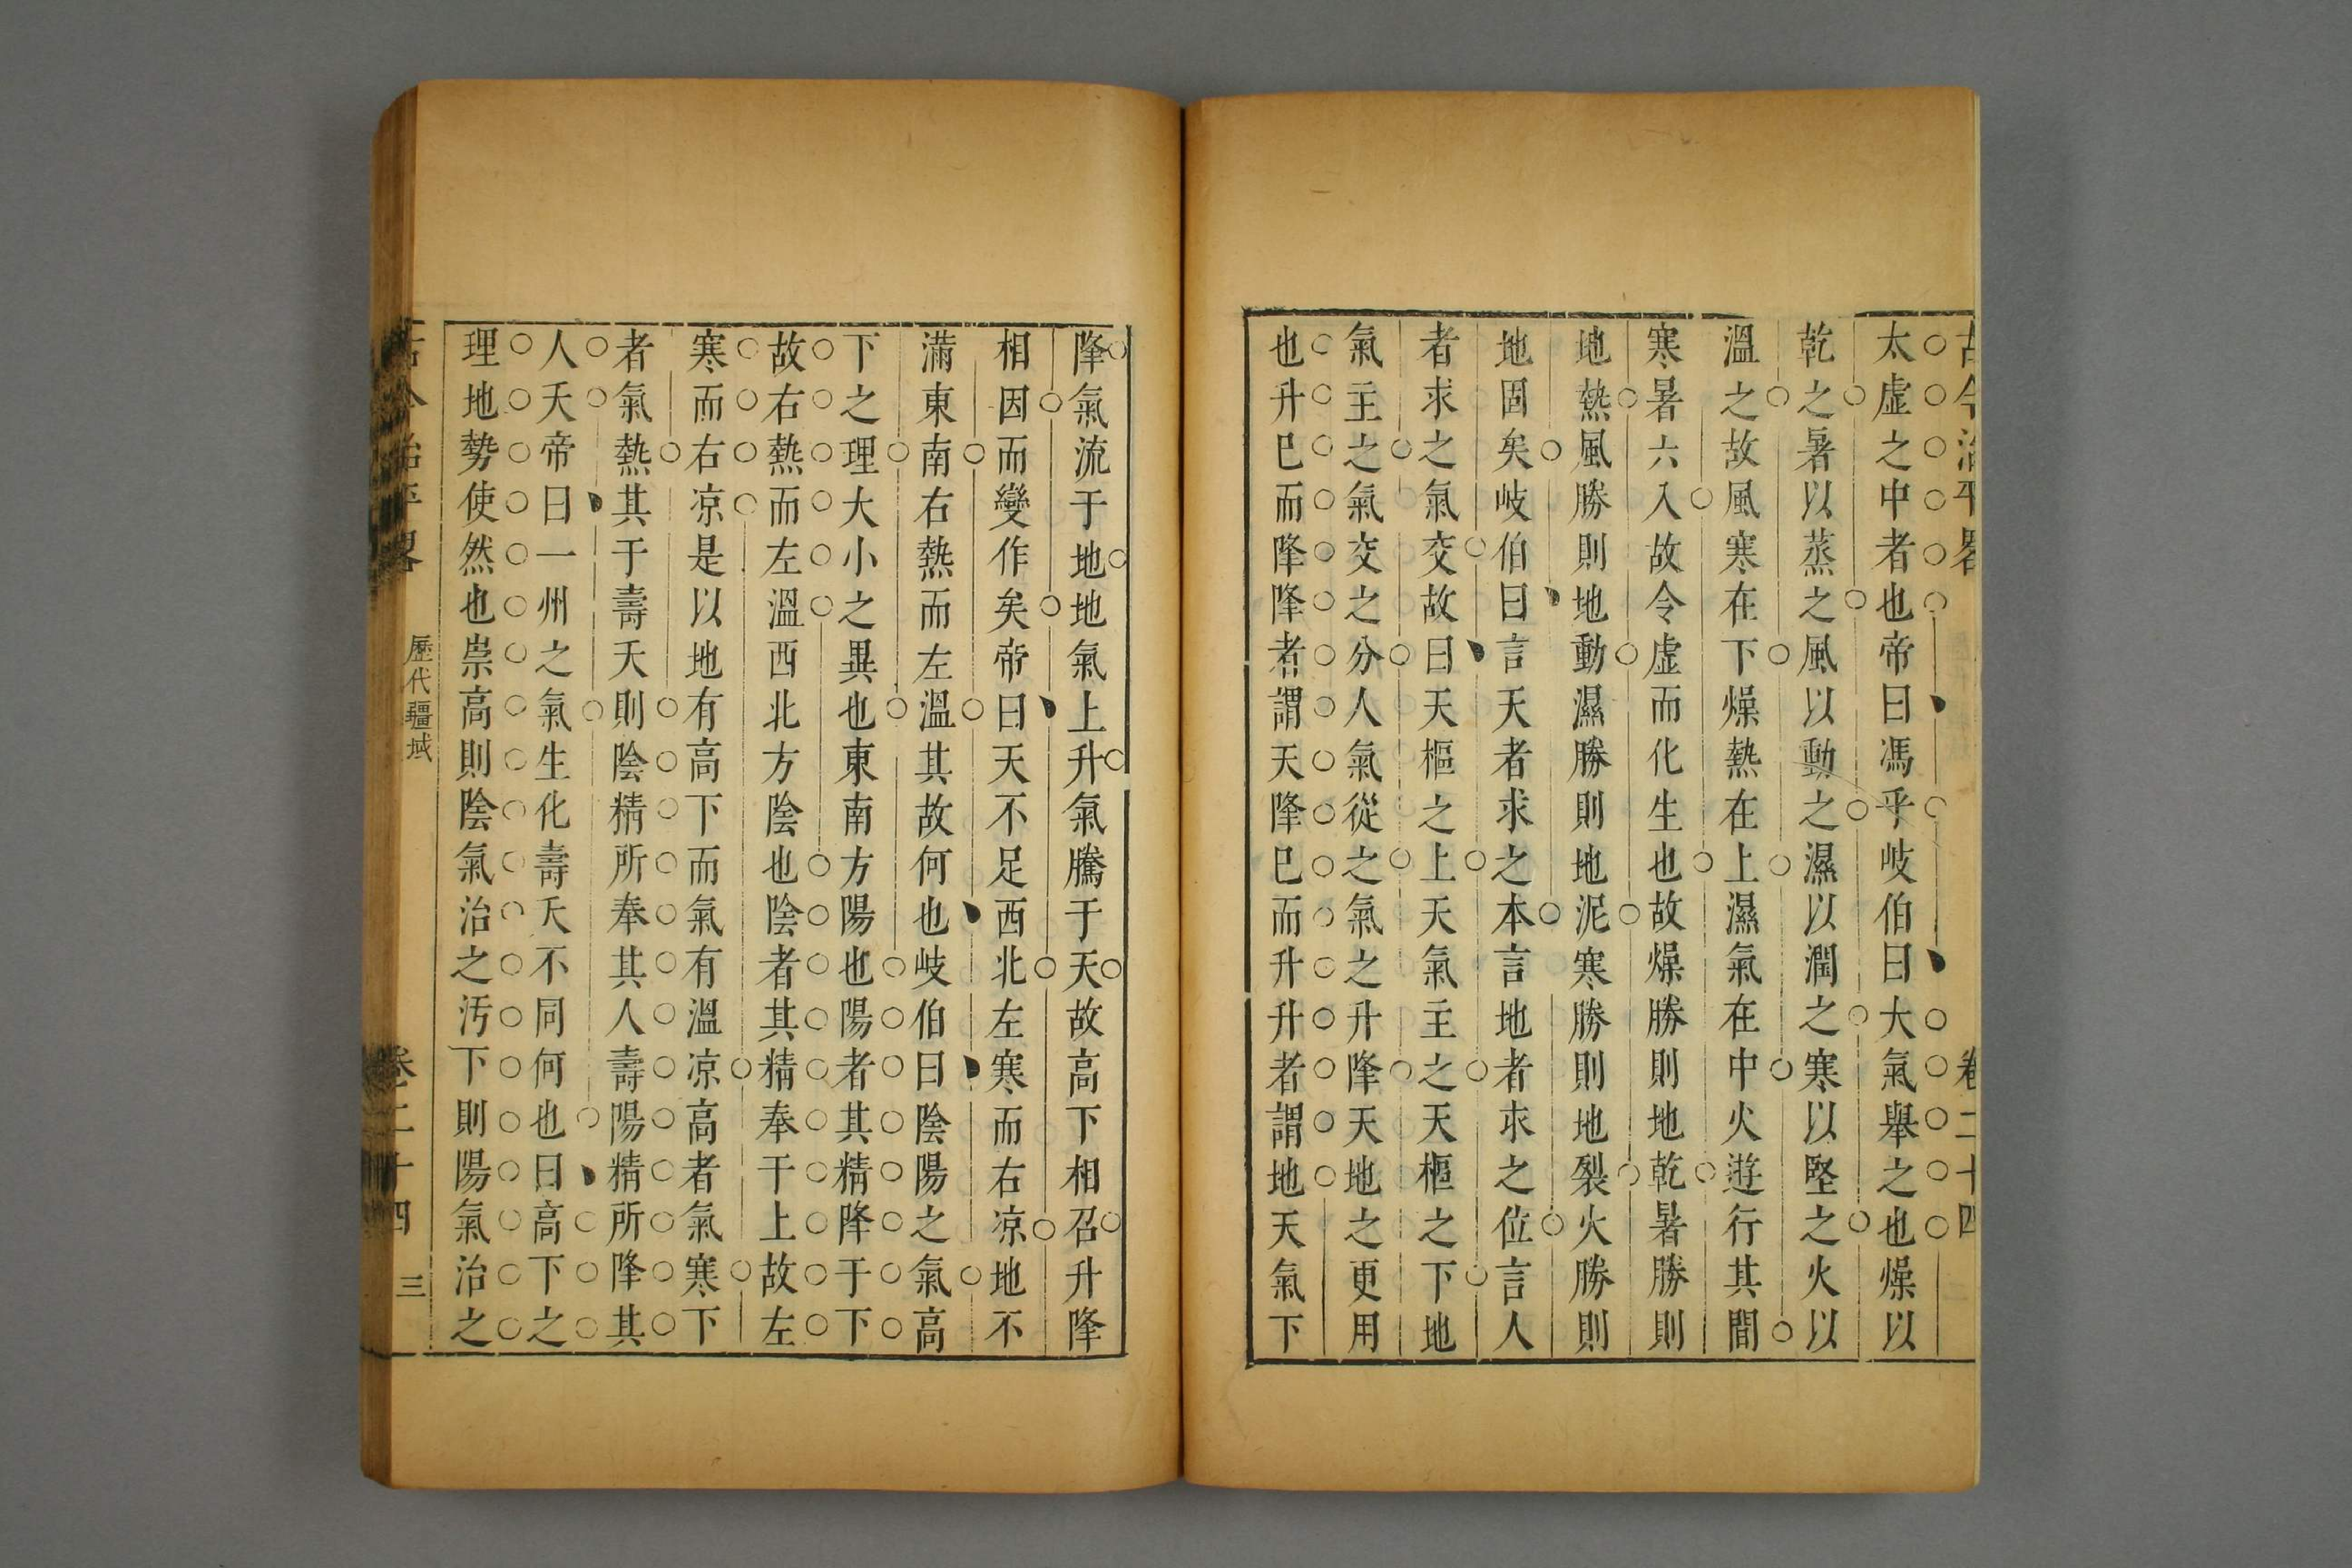 古今治平畧 卷二十四
太虛之中者也帝曰馮乎岐伯曰大氣舉之也燥以
乾之暑以蒸之風以動之濕以潤之寒以堅之火以
溫之故風寒在下燥熱在上濕氣在中火遊行其間
寒暑六入故令虛而化生也故燥勝則地乾暑勝則
地熱風勝則地動濕勝則地泥寒勝則地裂火勝則
地固矣岐伯曰言天者求之本言地者求之位言人
者求之氣交故曰天樞之上天氣主之天樞之下地
氣主之氣交之分人氣從之氣之升降天地之更用
也升已而降降者謂天降已而升升者謂地天氣下
降氣流于地地氣上升氣騰于天故高下相召升降
相因而變作矣帝曰天不足西北左寒而右凉地不
滿東南右熱而左溫其故何也岐伯曰陰陽之氣高
下之理大小之異也東南方陽也陽者其精降于下
故右熱而左溫西北方陰也陰者其精奉于上故左
寒而右凉是以地有高下而氣有溫凉高者氣寒下
者氣熱其于壽夭則陰精所奉其人壽陽精所降其
人夭帝曰一州之氣生化壽夭不同何也曰高下之
理地勢使然也崇高則陰氣治之汚下則陽氣治之
古今治平畧 歷代疆域 卷二十四 三